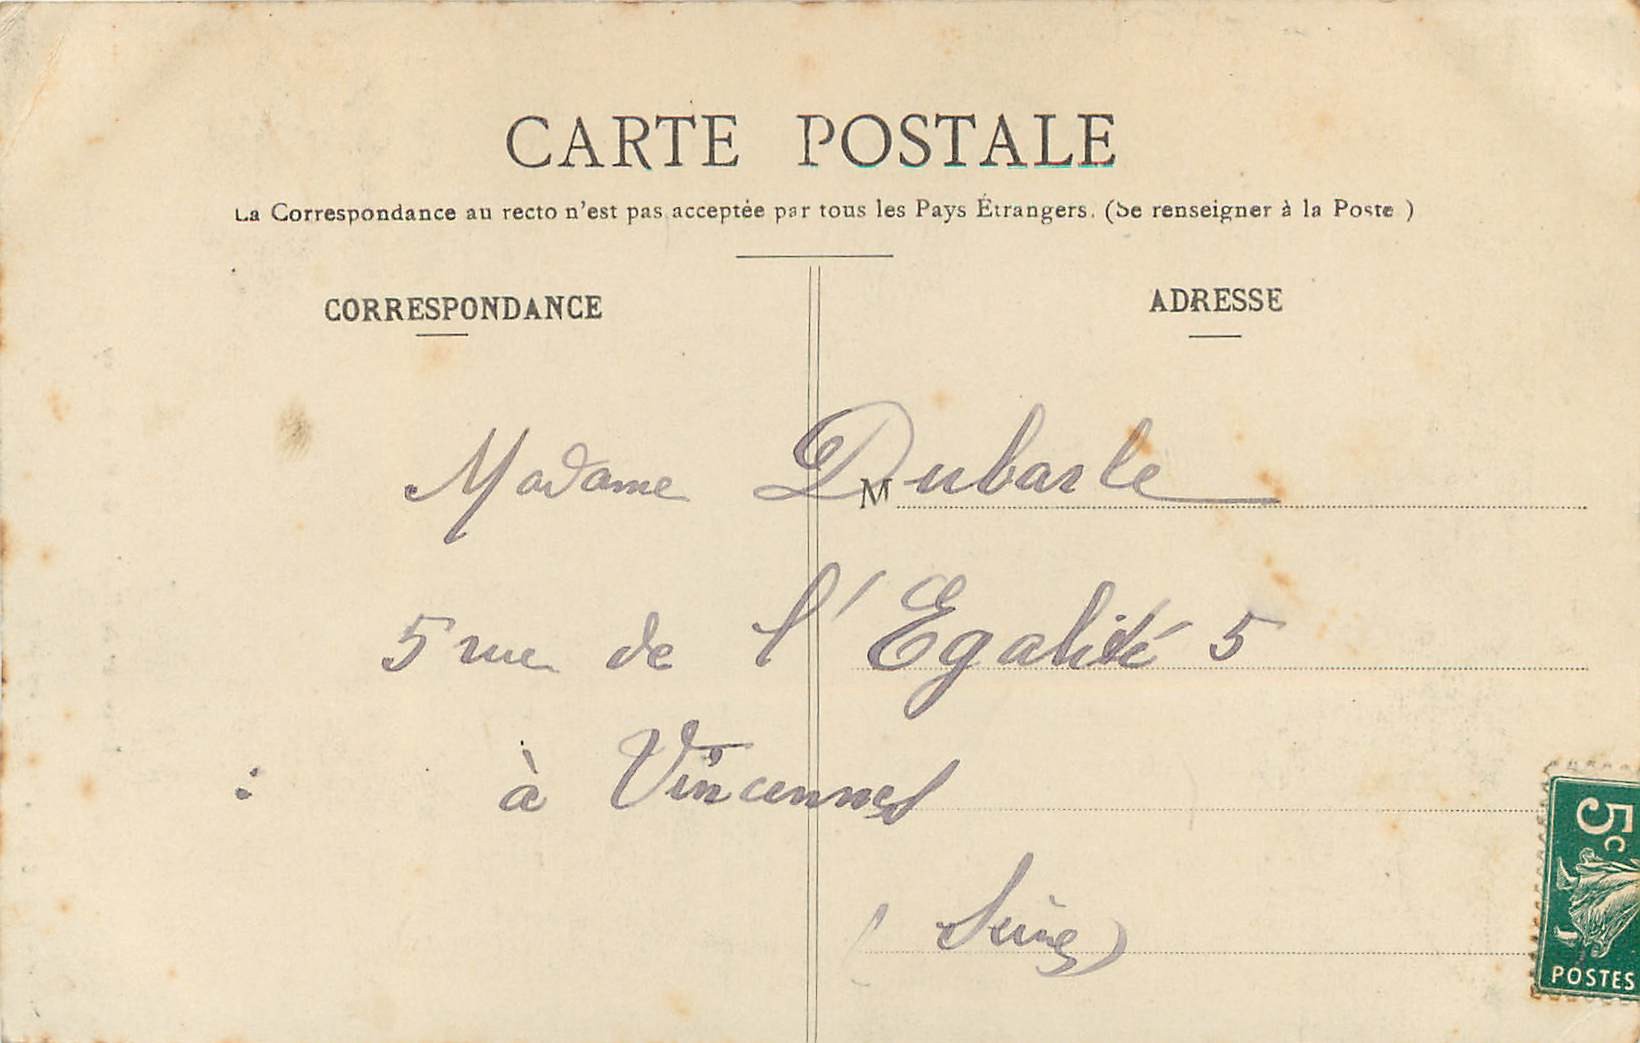 CARTE POSTALE
La Correspondance au recto n'est pas acceptée par tous les Pays Étrangers. (Se renseigner à la Poste )
CORRESPONDANCE
ADRESSE
Madame Dubarle
M
5 rue de l'Egalité 5
à Vincennes
(Seine)
5c
POSTES